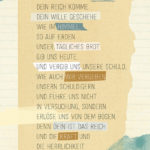 DEIN REICH KOMME.
DEIN WILLE GESCHEHE
WIE IM HIMMEL,
SO AUF ERDEN.
UNSER TÄGLICHES BROT
GIB UNS HEUTE.
UND VERGIB UNS UNSERE SCHULD,
WIE AUCH WIR VERGEBEN
UNSERN SCHULDIGERN.
UND FÜHRE UNS NICHT
IN VERSUCHUNG, SONDERN
ERLÖSE UNS VON DEM BÖSEN.
DENN DEIN IST DAS REICH
UND DIE KRAFT UND
DIE HERRLICHKEIT